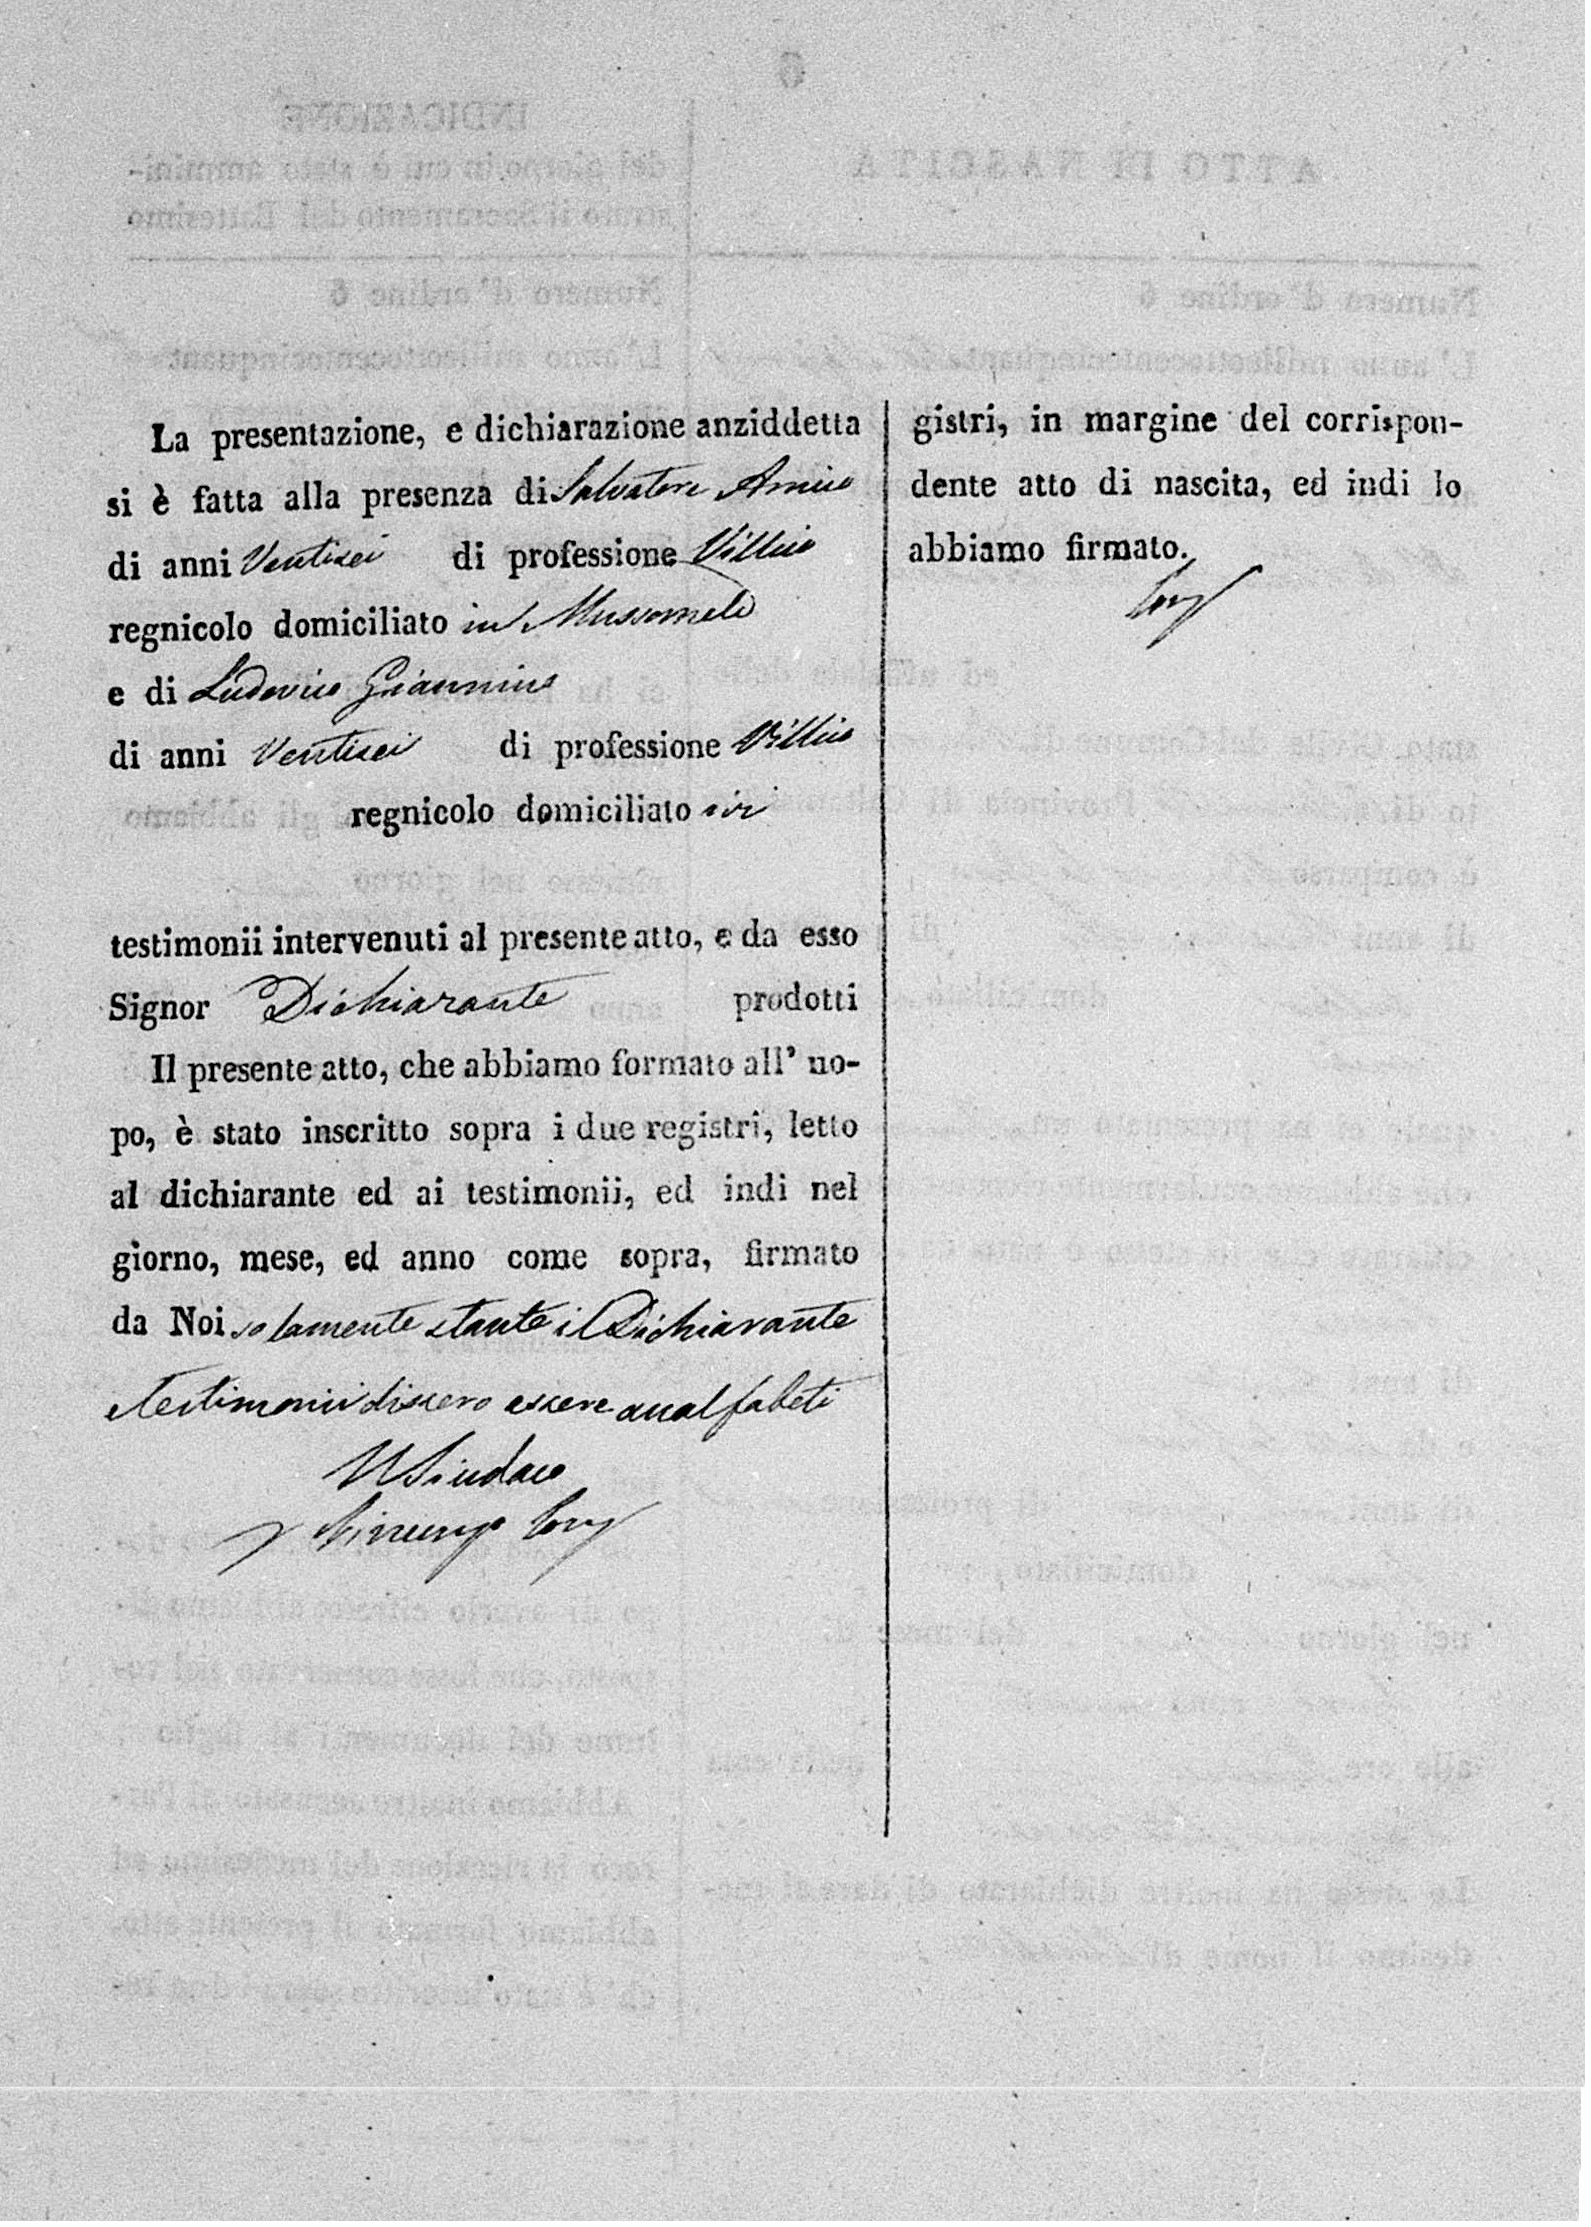 La presentazione, e dichiarazione anziddetta
si è fatta alla presenza di Salvatore Amico
di anni Ventisei di professione Villico
regnicolo domiciliato in Mussomeli
e di Ludovico Giannino
di anni Ventisei di professione Villico
regnicolo domiciliato ivi
testimonii intervenuti al presente atto, e da esso
Signor Dichiarante prodotti
Il presente atto, che abbiamo formato all' uo-
po, è stato inscritto sopra i due registri, letto
al dichiarante ed ai testimonii, ed indi nel
giorno, mese, ed anno come sopra, firmato
da Noi solamente stante il Dichiarante
e testimonii dissero essere analfabeti
Il Sindaco
gistri, in margine del corrispon-
dente atto di nascita, ed indi lo
abbiamo firmato.